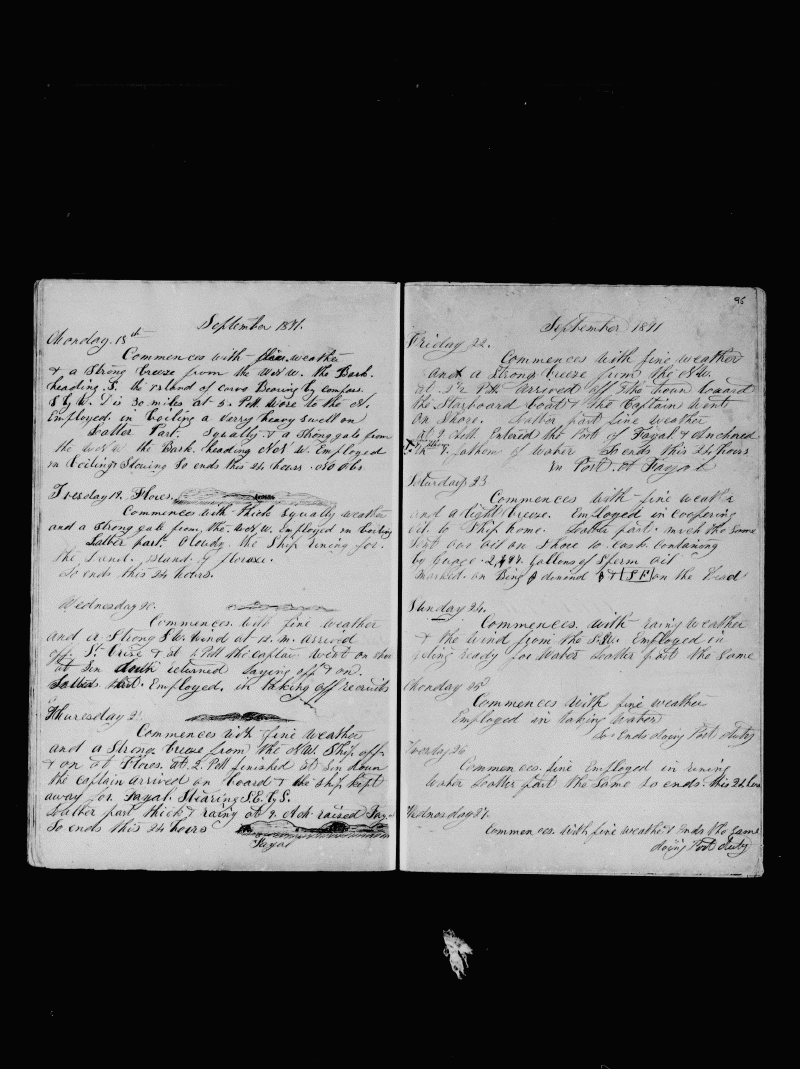 September 1871.
Monday. 18th
Commences with fine weather
& a Strong breeze from the W.N.W. the Bark.
heading S. the island of Corvo Bearing by compass.
S by W. Dis 30 miles at 5. PM Wore to the N.
Employed. in Coiling a verry heavy swell on
Latter Part. Squally. & a strong gale from
the W.N.W the Bark. heading N.N.W. Employed
in Coiling & Stowing So ends this 24 hours. 250 bbls
Tuesday 19. Flores.
Commences with thick squally weather
and a strong gale from, the. W.N.W. Employed in Coiling
Latter part. Cloudy the Ship runing for.
the Land. island. of flores.
So ends this 24 hours.
Wednesday 20.
Commences. with fine weather
and a Strong S.W. Wind at 12. M. arrived
off. St Cruse & at 2 PM the captain Went on shore
at Sun down returned laying off & on.
Latter Part. Employed, in taking off recruits
Thursday 21
Commences with fine weather
and a Strong breeze from the N.W. Ship off
& on at Flores. at. 2. PM finished at Sun down
the Captain arrived on board & the ship kept
away for Fayal. Stearing S.E. by S.
Latter part thick & rainy at 9. AM raised Fayal
So ends this 24 hours
Fayal
95
September 1871
Friday 22.
Commences with fine weather
and a Strong breeze from the N.W.
at. 3½ PM. arrived off the town lowered
the Starboard boat & the Captain went
on Shore. Latter part fine weather
at 9 AM Entered the Port of Fayal & anchored
in 9. fathom of Water So ends this 24 hours
in Port. of Fayal
Saturday 23
Commences with fine weather
and a light breeze. Employed in coopering
oil to Ship home. Latter part. much the Same
Sent our oil on Shore 10 cask containing
by Guage. 2,497. Gallons of Sperm oil
marked. on Bung & S F on the head
Sunday 24.
Commences. with rainy weather
& the wind from the S.S.W. Employed in
geting ready for Water Latter part the Same
Monday 25
Commences with fine weather
Employed in taking Water
So Ends doing Port duty
Tuesday 26
Commences. fine Employed in
Water Latter part the Same So ends this 24 hours
Wednesday 27.
Commences. with fine weather & ends the same
doing Port duty